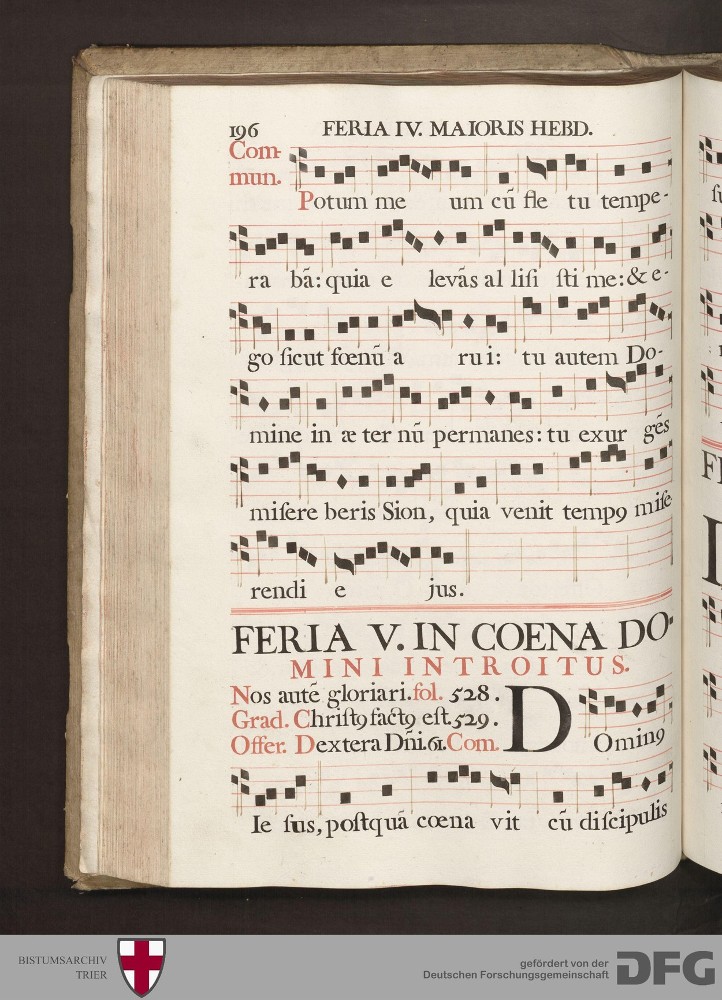 196 FERIA IV. MAIORIS HEBD.
Com-
mun.
Potum me um cū fle tu tempe-
ra bā: quia e levās al liſi ſti me: & e-
go ſicut fœnū a rui: tu autem Do-
mine in æ ter nū permanes: tu exur gēs
miſere beris Sion, quia venit tempꝰ miſe
rendi e jus.
FERIA V. IN COENA DO-
MINI INTROITUS.
Nos autē gloriari. fol. 528.
Grad. Chriſtꝰ factꝰ eſt. 529.
Offer. Dextera Dn̄i. 61. Com.
Dominꝰ
Ie ſus, poſtquā cœna vit cū diſcipulis
BISTUMSARCHIV
TRIER
gefördert von der
Deutschen Forschungsgemeinschaft
DFG